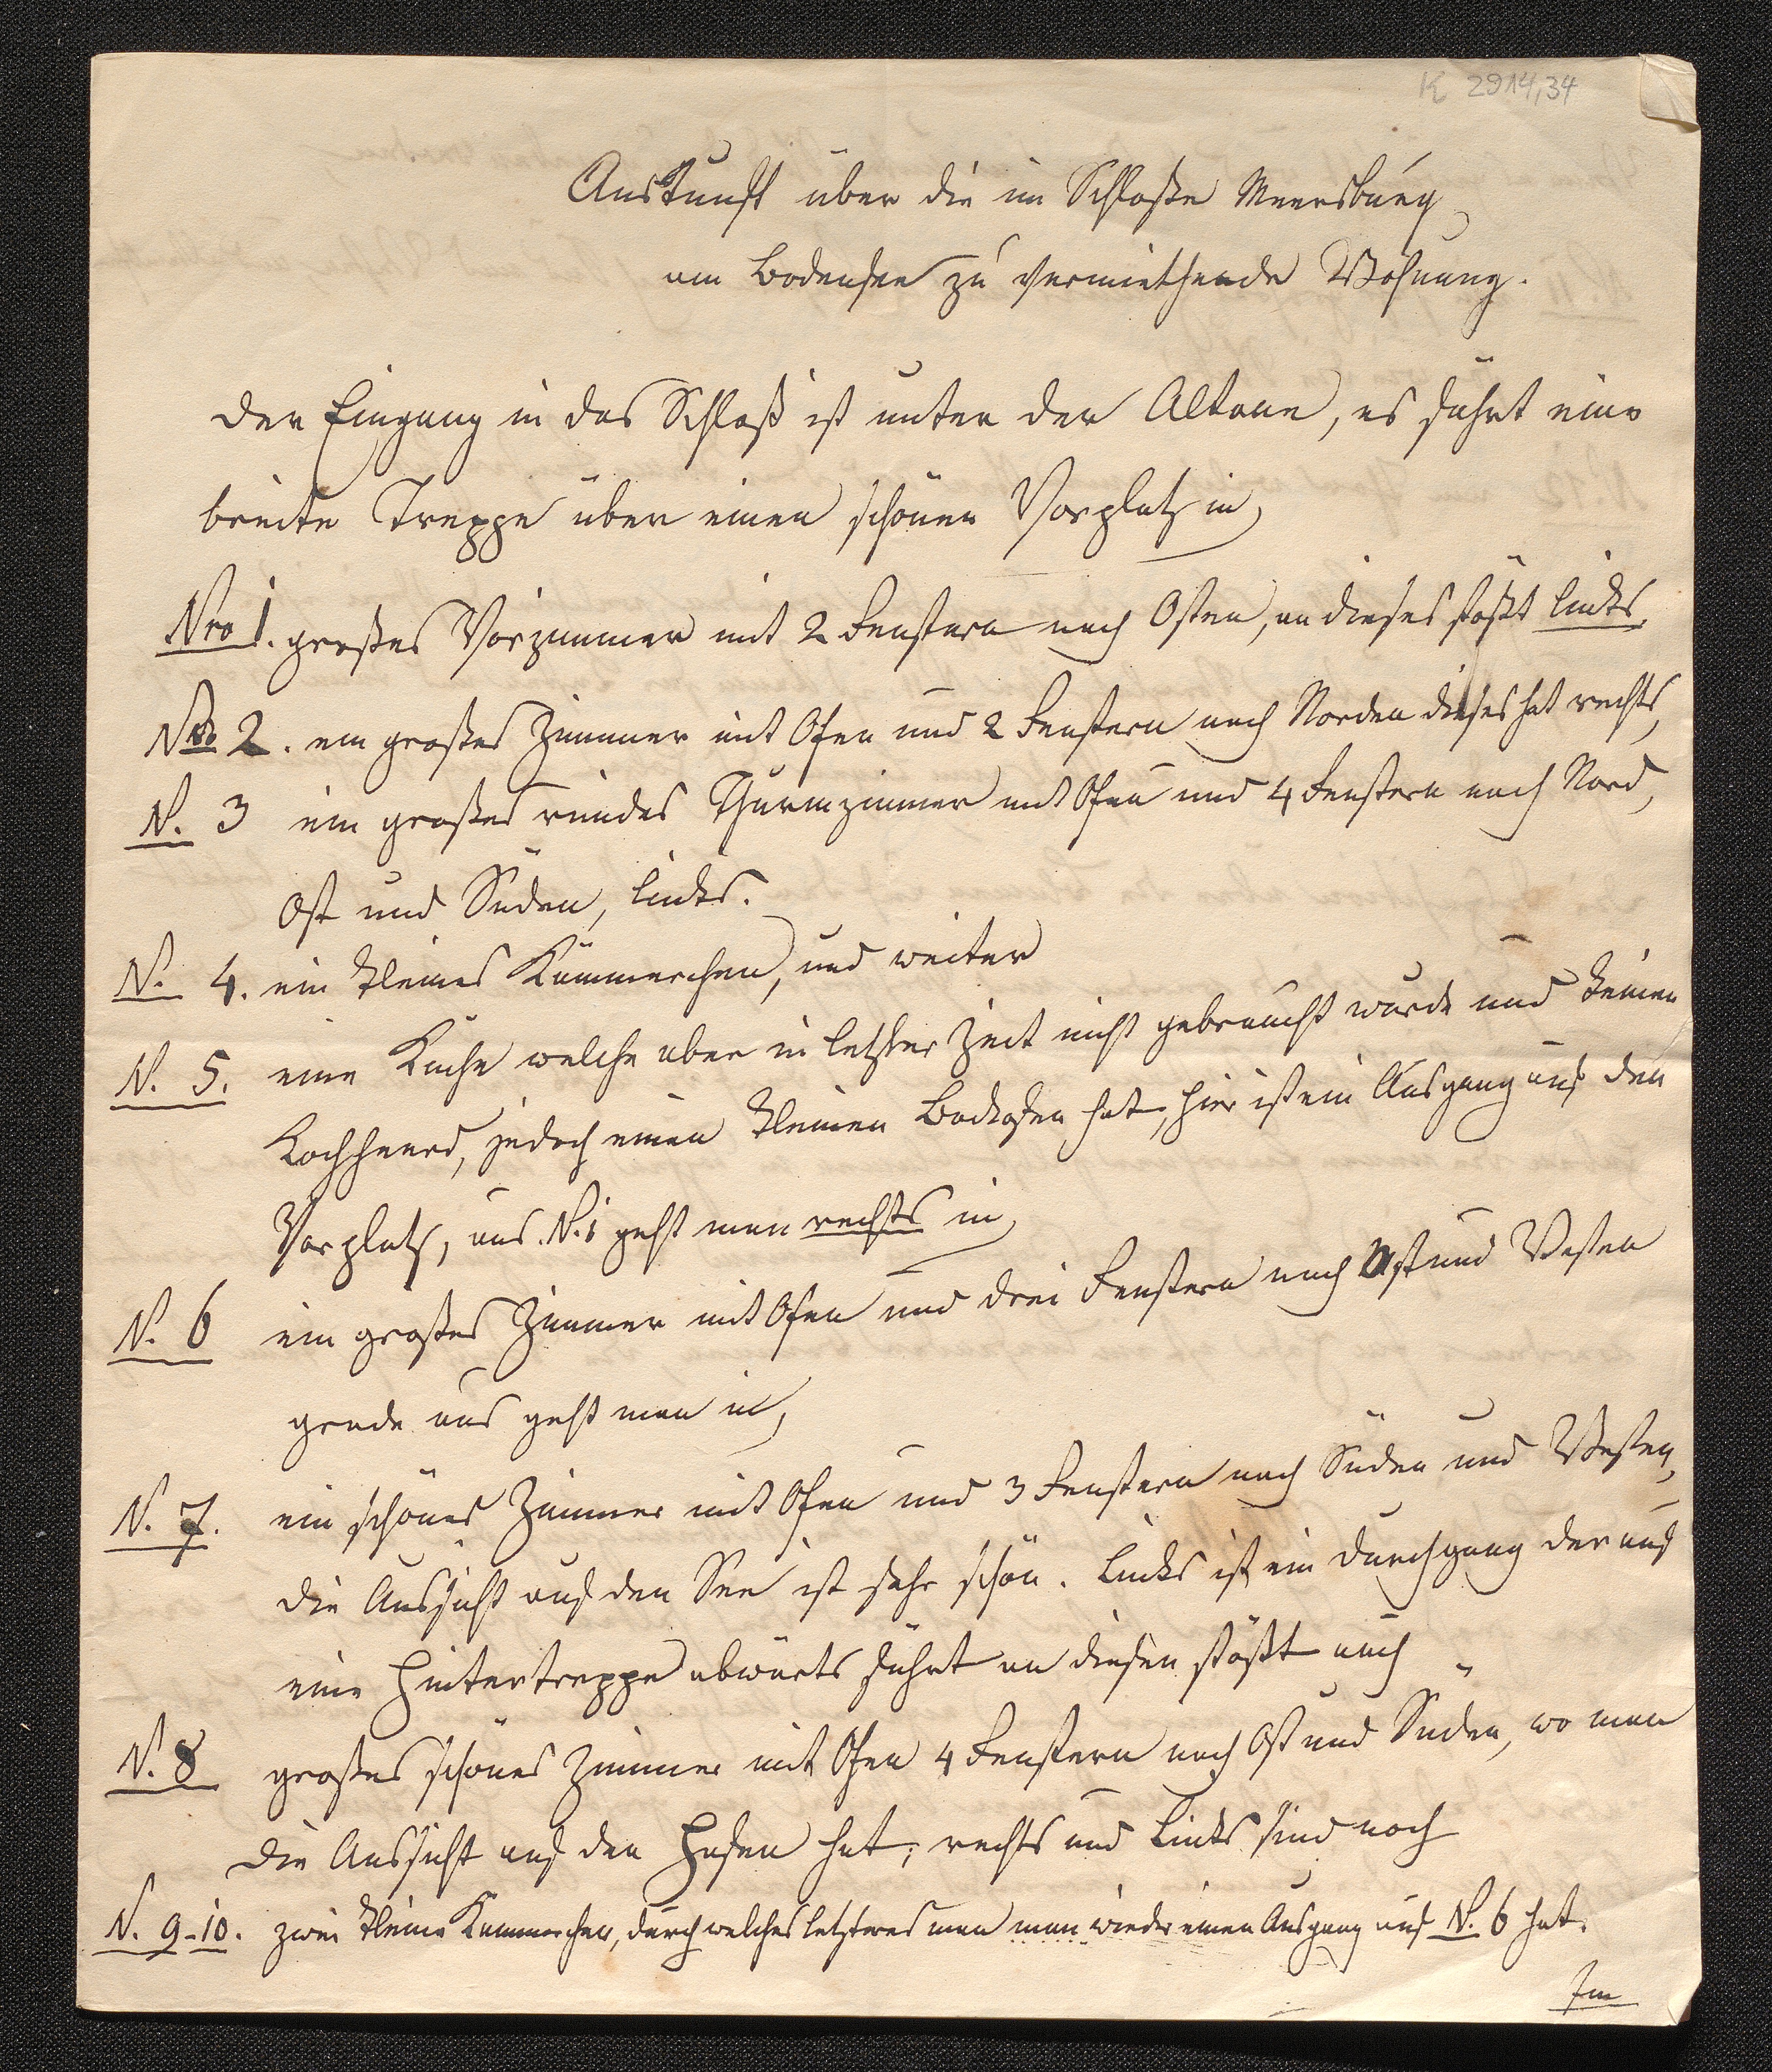 K 2914,34
Auskunft über die im Schloße Meersburg
am Bodensee zu vermiethende Wohnung.
Der Eingang in das Schloß ist unter der Altane, es führt eine
breite Treppe über einen schönen Vorplatz in
Nro 1. großes Vorzimmer mit 2 Fenstern nach Osten, an dieses stößt links
Nro 2. ein großes Zimmer mit Ofen und 2 Fenstern nach Norden dieses hat rechts
N. 3 ein großes rundes Thurmzimmer mit Ofen und 4 Fenstern nach Nord,
Ost und Süden, links.
N. 4. ein kleines Kämmerchen, und weiter
N. 5. eine Küche welche aber in letzter Zeit nicht gebraucht wurde und keinen
Kochheerd, jedoch einen kleinen Backofen hat, hier ist ein Ausgang auf den
Vorplatz, aus N. 1 geht man rechts in
N. 6 ein großes Zimmer mit Ofen und drei Fenstern nach Ost und Westen
grade aus geht man in
N. 7. ein schönes Zimmer mit Ofen und 3 Fenstern nach Süden und Westen,
die Aussicht auf den See ist sehr schön. Links ist ein Durchgang der auf
eine Hintertreppe abwärts führt an diesen stößt auch
N. 8 großes schönes Zimmer mit Ofen 4 Fenstern nach Ost und Süden, wo man
die Aussicht auf den Hafen hat; rechts und links sind noch
N. 9-10. zwei kleine Kämmerchen, durch welches letzteres man man wieder einen Ausgang auf N. 6 hat.
Im